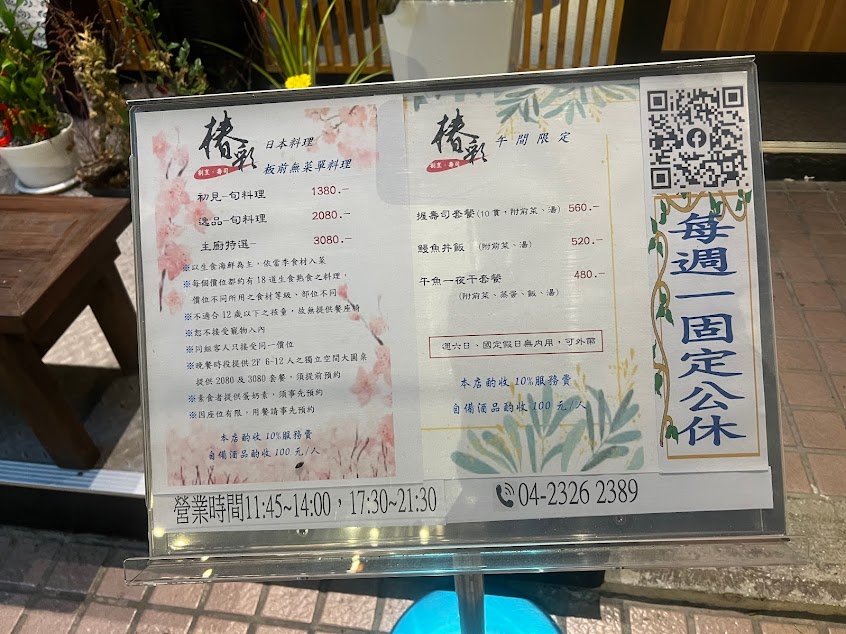 椿彩
割烹・壽司
日本料理
板前無菜單料理
初見-旬料理 1380.-
逸品-旬料理 2080.-
主廚特選- 3080.-
※以生食海鮮為主、依當季食材入菜
※每個價位都約有18道生食熟食之料理,
價位不同所用之食材等級、部位不同
※不適合12歲以下之孩童,故無提供餐座椅
※恕不接受寵物入內
※同組客人只接受同一價位
※晚餐時段提供2F 6-12人之獨立空間大圓桌
提供2080及3080套餐,須提前預約
※素食者提供蛋奶素,須事先預約
※因座位有限,用餐請事先預約
本店酌收10%服務費
自備酒品酌收100元/人
椿彩
割烹・壽司
午間限定
握壽司套餐(10貫,附前菜、湯) 560.-
鰻魚丼飯 (附前菜、湯) 520.-
午魚一夜干套餐 480.-
(附前菜、蒸蛋、飯、湯)
週六日、國定假日無內用,可外帶
本店酌收10%服務費
自備酒品酌收100元/人
每週一固定公休
營業時間11:45~14:00,17:30~21:30
04-2326 2389